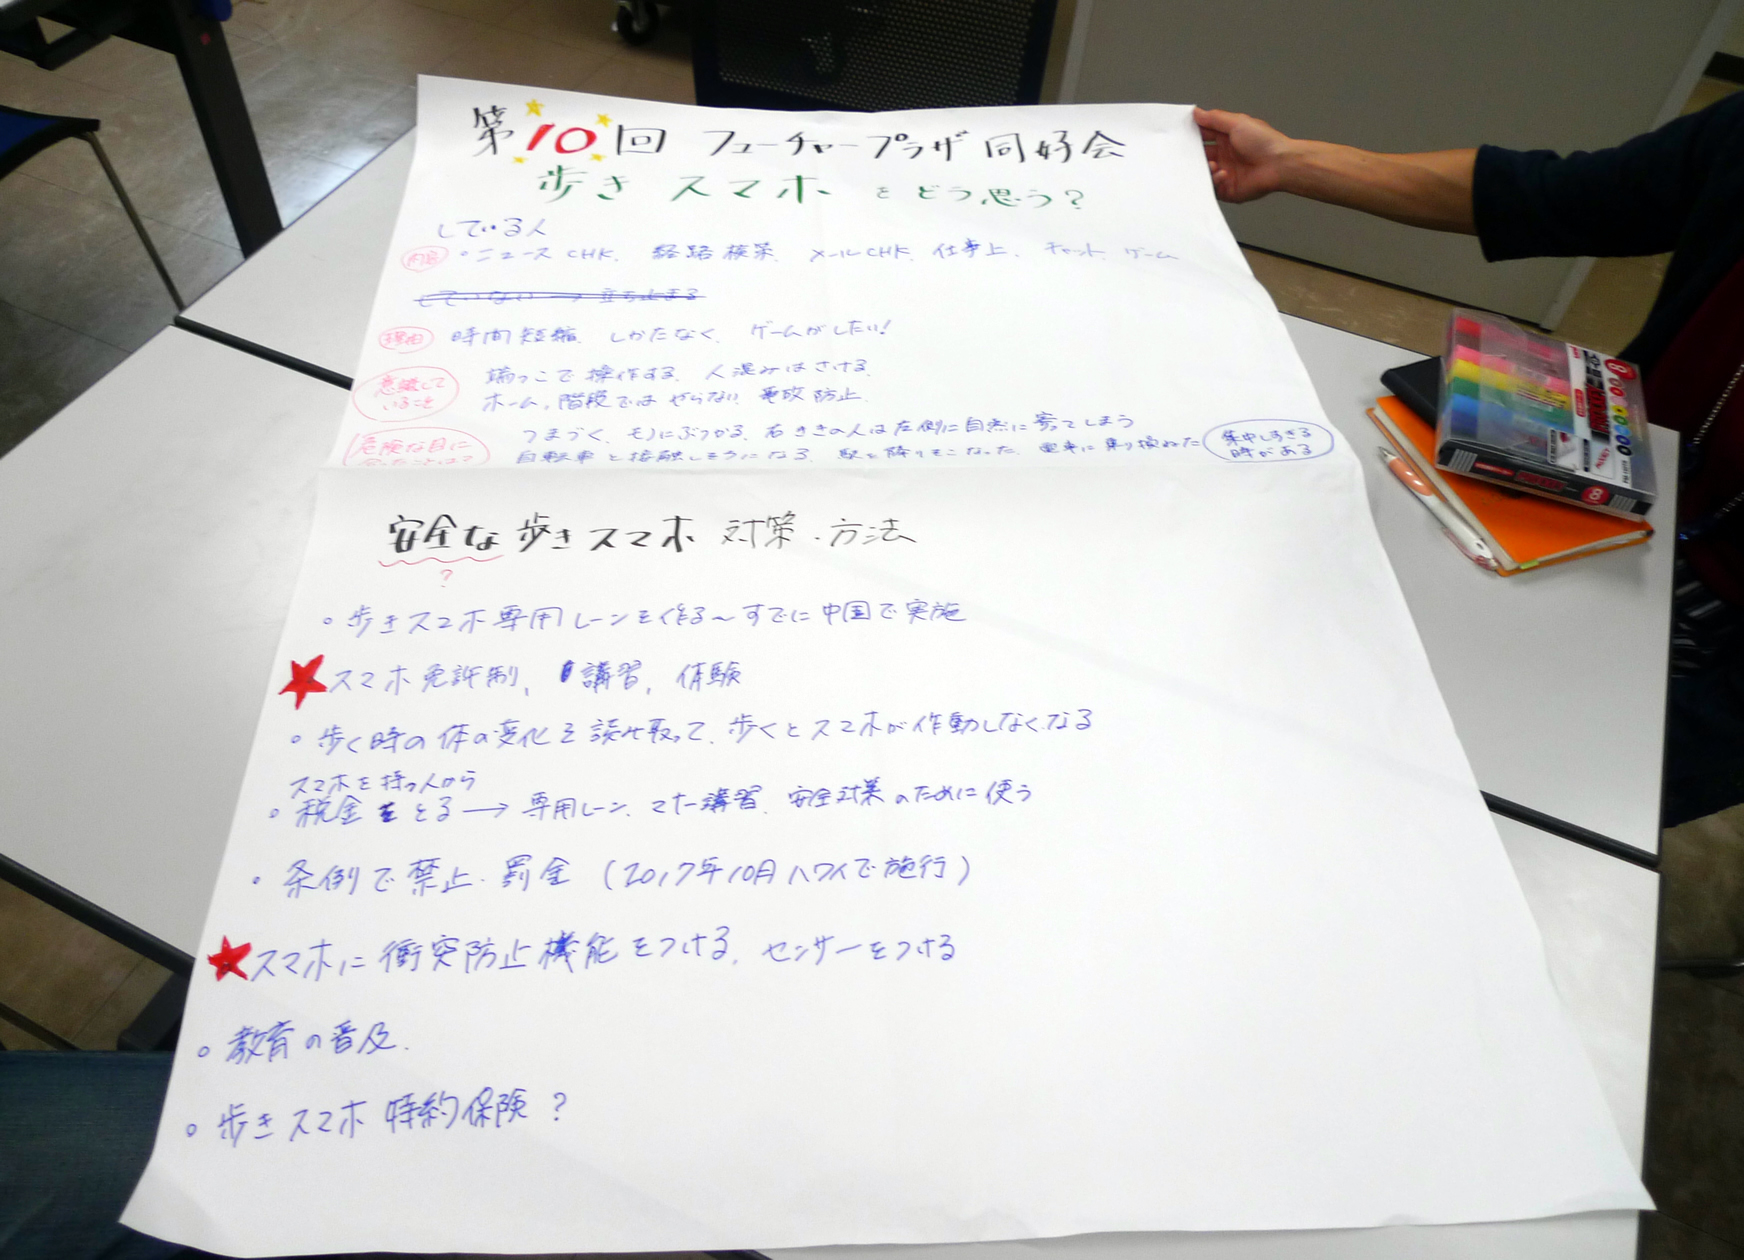 第10回 フューチャープラザ同好会
歩きスマホをどう思う?
している人
内容 ・ニュースCHK. 経路検索. メールCHK. 仕事上. チャット. ゲーム
していない → 立ち止まる
理由 時間短縮. しかたなく. ゲームがしたい!
意識していること 端っこで操作する. 人混みはさける.
ホーム, 階段ではやらない. 事故防止.
危険な目に つまづく, モノにぶつかる. 右ききの人は左側に自然に寄ってしまう
自転車と接触しそうになる. 駅を降りそこなった. 電車に乗り損ねた 集中しすぎる時がある
安全な歩きスマホ 対策・方法
?
。歩きスマホ専用レーンを作る〜すでに中国で実施
★スマホ免許制, 講習, 体験
・歩く時の体の変化を読み取って、歩くとスマホが作動しなくなる
スマホを持つ人から
。税金をとる → 専用レーン. マナー講習. 安全対策のために使う
・条例で禁止・罰金 (2017年10月ハワイで施行)
★スマホに衝突防止機能をつける, センサーをつける
。教育の普及.
。歩きスマホ特約保険?